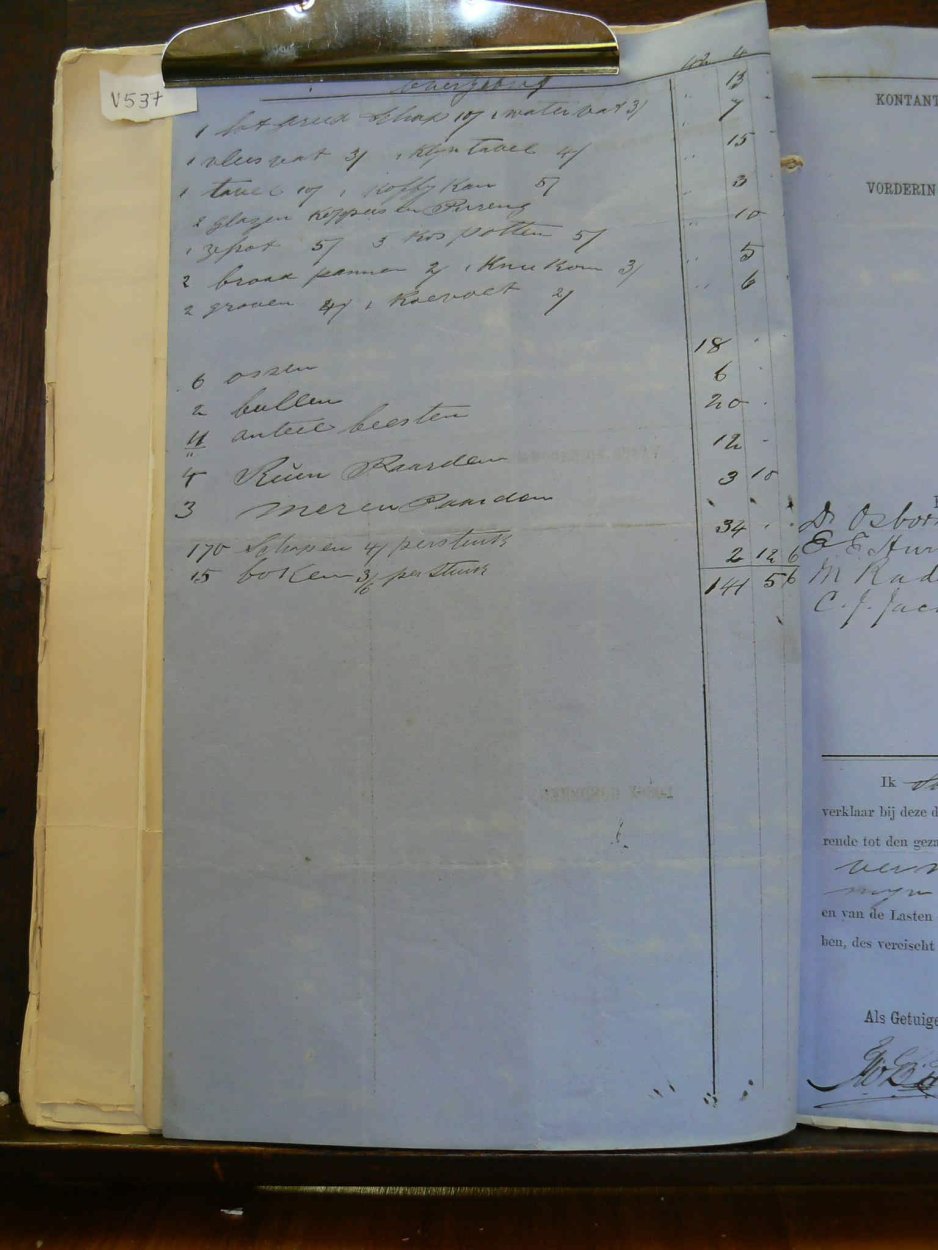 V537
" 13
1 lot gereedschap 10/ 1 water vat 3/ " 7
1 vleisvat 3/ 1 klyn tavel 4/ " 15
1 tavel 10/ 1 koffy kan 5/
2 glazen koppers en " 3
1 pot 5/ 3 kos potten 5/ " 10
2 braad pannen 2/ 1 kom 3/ " 5
2 graven 4/ 1 koevoet 2/ " 6
6 ossen 18
2 bullen 6
11 anteel beesten 20
4 Ruin Paarden 12
3 meren Paarden 3 10
170 Schapen 4/ perstuk 34
15 bokken 3/6 per stuk 2 12 6
141 5 6
KONTANT
VORDERIN
D. Osborn
E. E. Hur
M Rad
C. J. Jac
Ik
verklaar bij deze d
rende tot den geza
myn
en van de Lasten
ben, des vereischt
Als Getuige